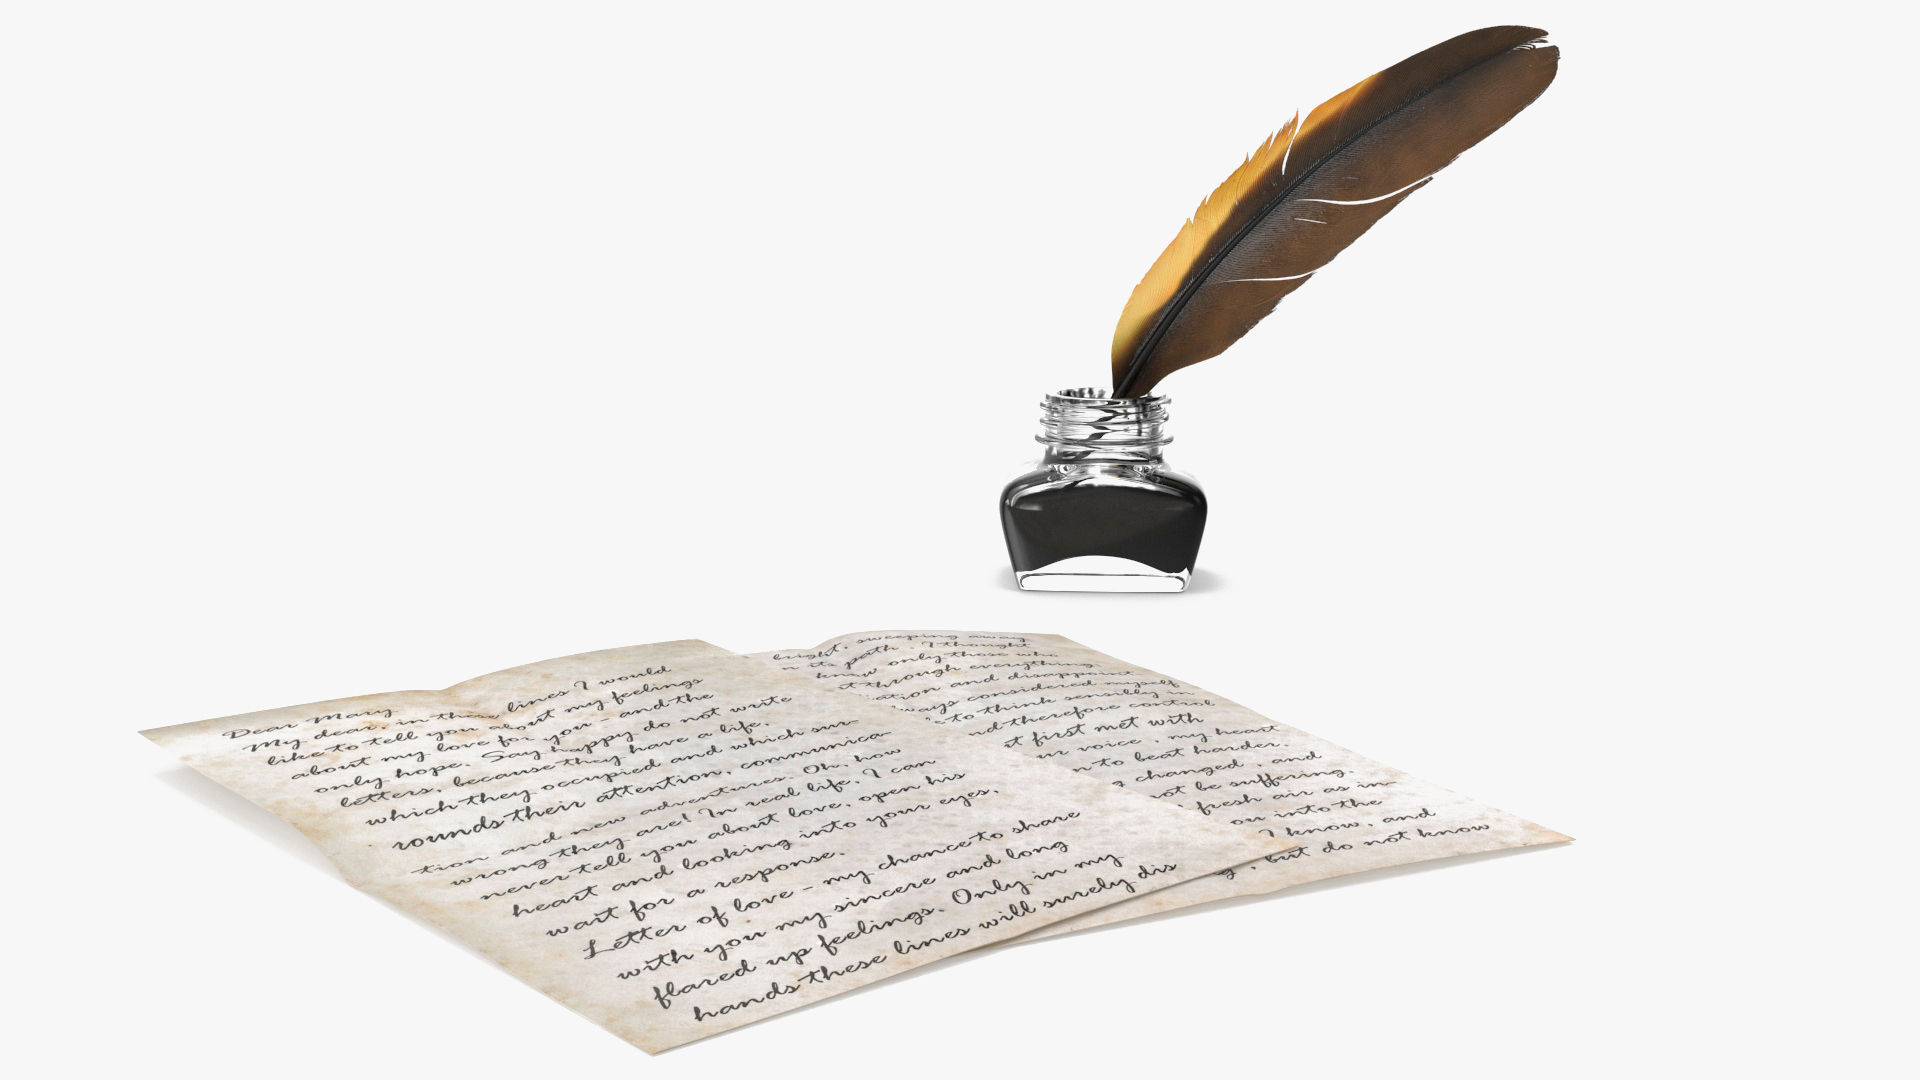 Dear Mary
My dear, in these lines I would
like to tell you about my feelings
about my love for you - and the
only hope. Say happy do not write
letters, because they have a life,
which they occupied and which sur-
rounds their attention, communica-
tion and new adventures. Oh, how
wrong they are! In real life, I can
never tell you about love, open his
heart and looking into your eyes,
wait for a response.
Letter of love - my chance to share
with you my sincere and long
flared up feelings. Only in my
hands these lines will surely dis
bright, sweeping away
its path. I thought
know only those who
through everything.
and disappoint
considered myself
to think sensibly in
therefore control
first met with
voice - my heart
to beat harder.
changed, and
not be suffering.
fresh air as in
into the
I know, and
, but do not know